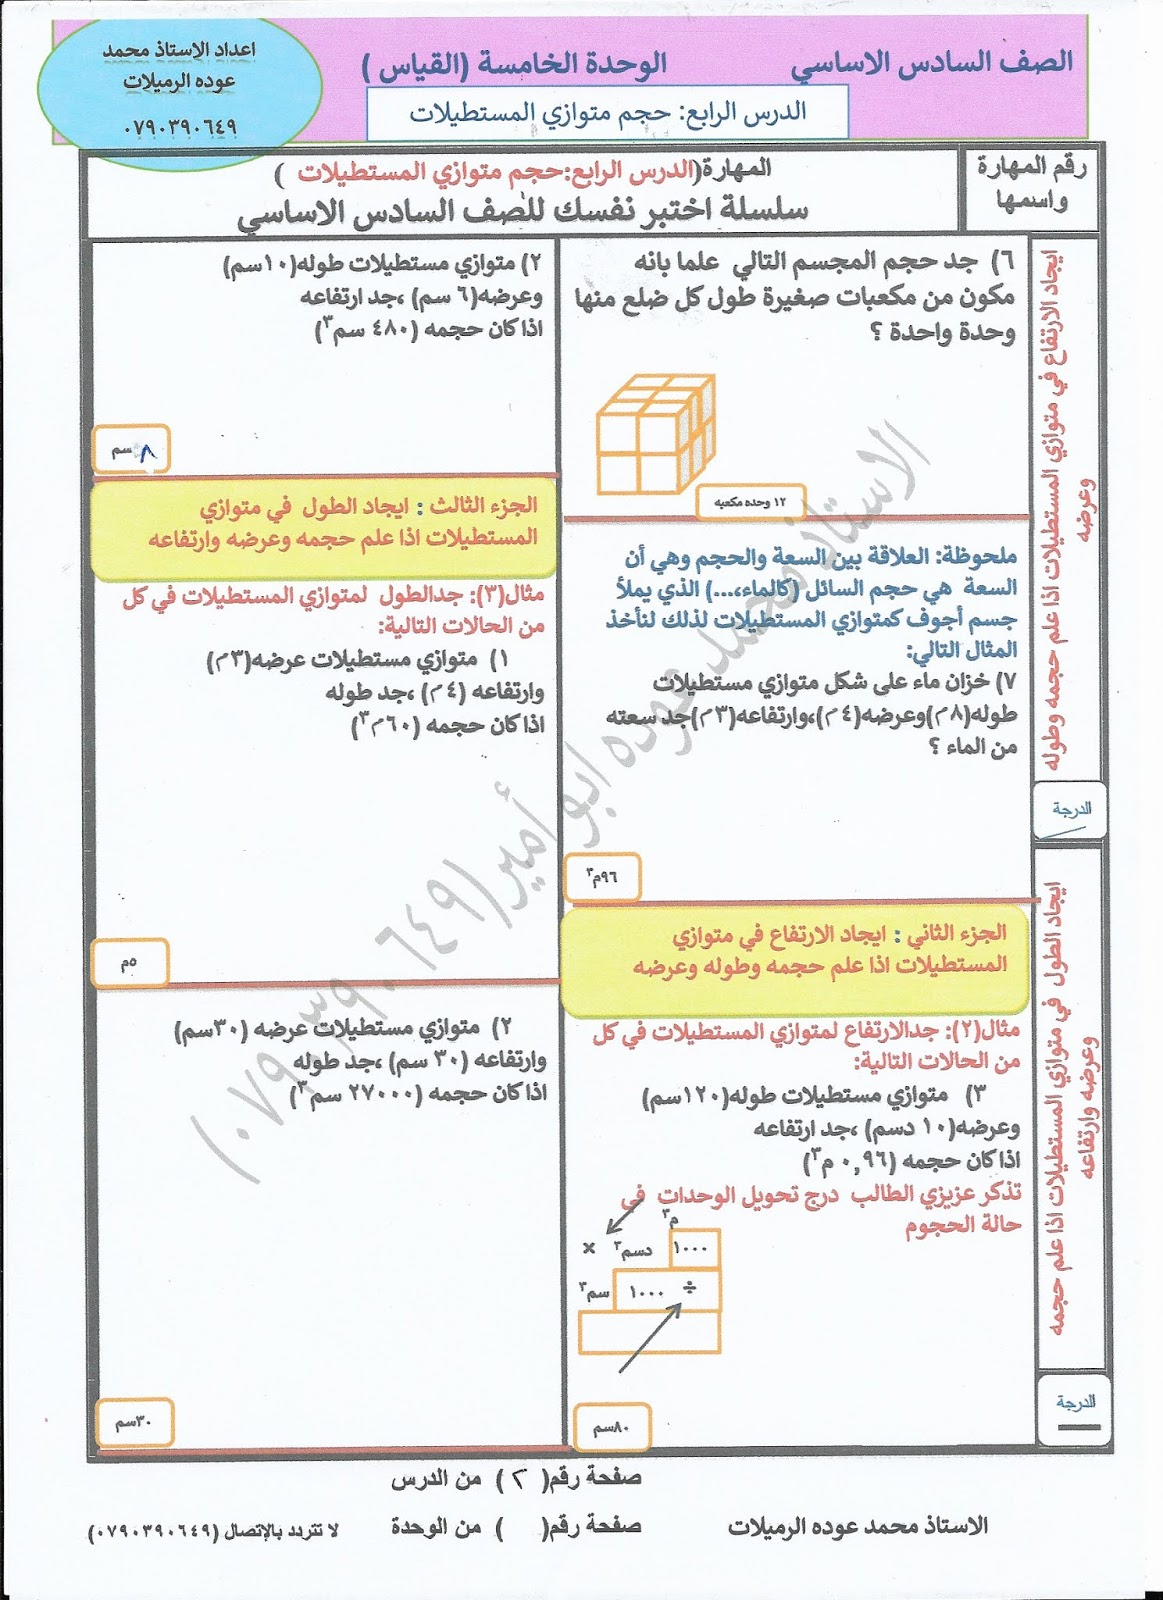 الصف السادس الاساسي
الوحدة الخامسة (القياس )
اعداد الاستاذ محمد
عوده الرميلات
٠٧٩٠٣٩٠٦٤٩
الدرس الرابع: حجم متوازي المستطيلات
رقم المهارة
واسمها
المهارة(الدرس الرابع:حجم متوازي المستطيلات )
سلسلة اختبر نفسك للصف السادس الاساسي
ايجاد الارتفاع في متوازي المستطيلات اذا علم حجمه وطوله
وعرضه
الدرجة
ايجاد الطول في متوازي المستطيلات اذا علم حجمه
وعرضه وارتفاعه
الدرجة
٦) جد حجم المجسم التالي علما بانه
مكون من مكعبات صغيرة طول كل ضلع منها
وحدة واحدة ؟
١٢ وحده مكعبه
ملحوظة: العلاقة بين السعة والحجم وهي أن
السعة هي حجم السائل (كالماء،...) الذي يملأ
جسم أجوف كمتوازي المستطيلات لذلك لنأخذ
المثال التالي:
٧) خزان ماء على شكل متوازي مستطيلات
طوله(٨م)وعرضه(٤م)،وارتفاعه(٣م)جد سعته
من الماء ؟
٩٦م٣
الجزء الثاني : ايجاد الارتفاع في متوازي
المستطيلات اذا علم حجمه وطوله وعرضه
مثال(٢): جدالارتفاع لمتوازي المستطيلات في كل
من الحالات التالية:
٣) متوازي مستطيلات طوله(١٢٠سم)
وعرضه(١٠ دسم) ،جد ارتفاعه
اذا كان حجمه (٠,٩٦ م٣)
تذكر عزيزي الطالب درج تحويل الوحدات في
حالة الحجوم
م٣
× دسم٣ ١٠٠٠
سم٣ ١٠٠٠ ÷
٨٠سم
٢) متوازي مستطيلات طوله(١٠سم)
وعرضه(٦ سم) ،جد ارتفاعه
اذا كان حجمه (٤٨٠ سم٣)
٨ سم
الجزء الثالث : ايجاد الطول في متوازي
المستطيلات اذا علم حجمه وعرضه وارتفاعه
مثال(٣): جدالطول لمتوازي المستطيلات في كل
من الحالات التالية:
١) متوازي مستطيلات عرضه(٣م)
وارتفاعه (٤م) ،جد طوله
اذا كان حجمه (٦٠م٣)
٥م
٢) متوازي مستطيلات عرضه (٣٠سم)
وارتفاعه (٣٠ سم) ،جد طوله
اذا كان حجمه (٢٧٠٠٠ سم٣)
٣٠سم
الاستاذ محمد عوده ابو أمير(٠٧٩٠٣٩٠٦٤٩)
صفحة رقم( ٢ ) من الدرس
الاستاذ محمد عوده الرميلات
صفحة رقم( ) من الوحدة
لا تتردد بالإتصال (٠٧٩٠٣٩٠٦٤٩)